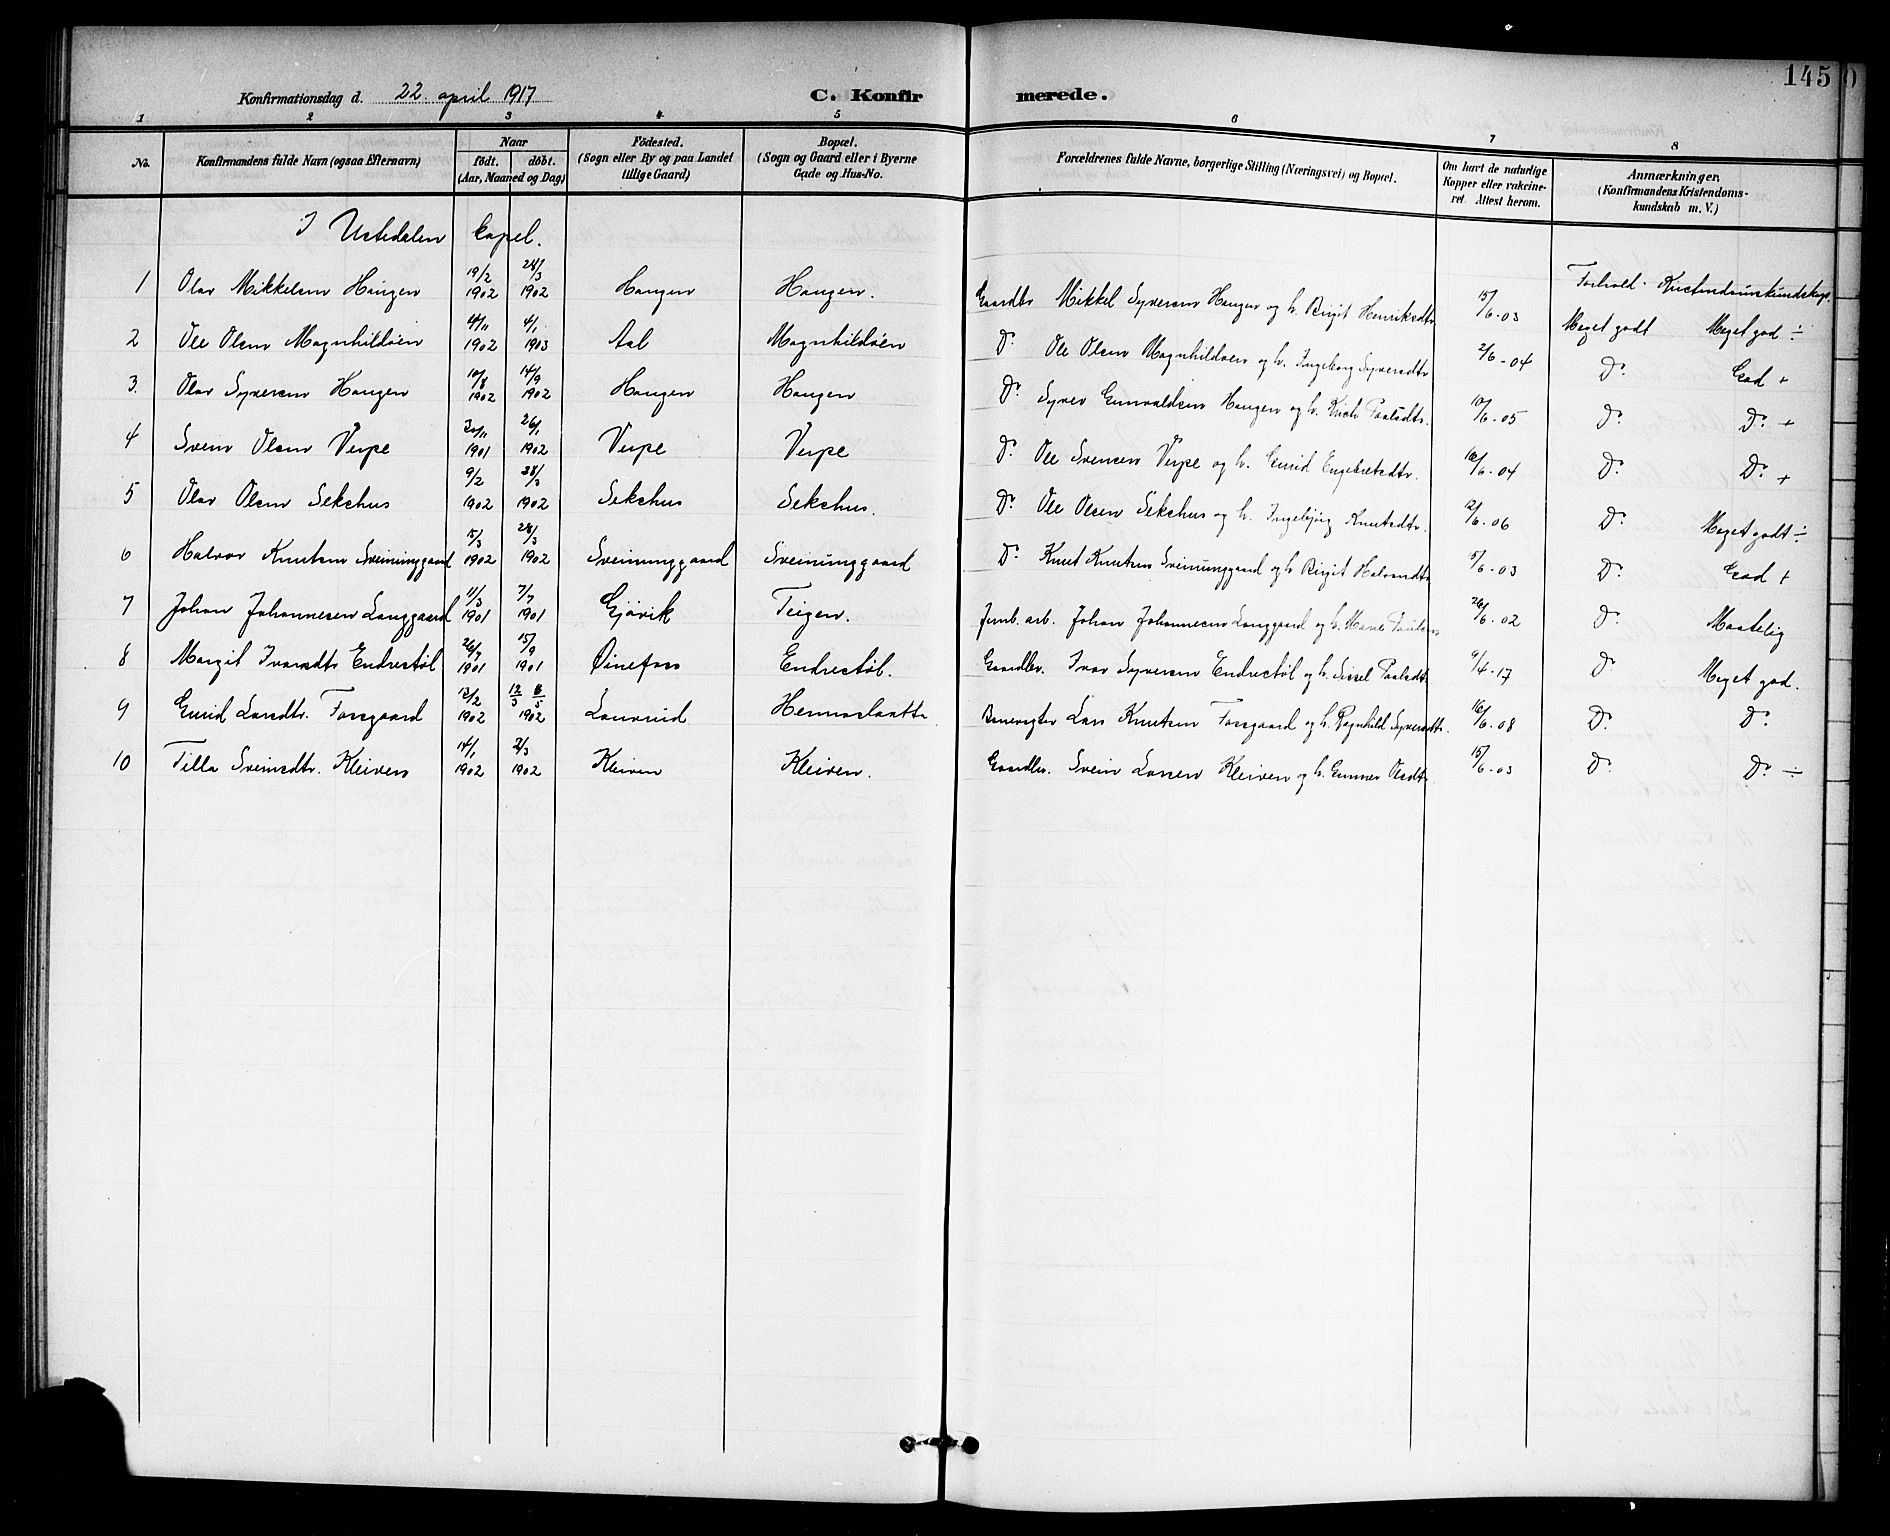 145
Konfirmationsdag d. 22. april 1917 C. Konfirmerede.
1 2 3 4 5 6 7 8
No. Konfirmandens fulde Navn (ogsaa Efternavn) Naar født. døbt. (Aar, Maaned og Dag) Fødested. (Sogn eller By og paa Landet tillige Gaard) Bopæl. (Sogn og Gaard eller i Byerne Gade og Hus-No. Forældrenes fulde Navne, borgerlige Stilling (Næringsvei) og Bopæl. Om havt de naturlige Kopper eller vakcineret. Attest herom. Anmærkninger. (Konfirmandens Kristendomskundskab m. V.)
I Ustedalen kapel.
Forhold. Kristendomskundskap
1 Olav Mikkelsen Haugen 19/2 1902 28/3 1902 Haugen Haugen. Gaardbr. Mikkel Syversen Haugen og h. Birgit Henriksdtr. 15/6-03 Meget godt Meget god ÷
2 Ole Olsen Magnhildøen 4/11 1902 4/1 1903 Aal Magnhildøen Do Ole Olsen Magnhildøen og h. Ingeborg Syversdtr. 2/6-04 Do God +
3. Olav Syversen Haugen 10/8 1902 14/9 1902 Haugen Haugen Do Syver Gunvaldsen Haugen og h. Paalsdtr. 10/6-05 Do Do +
4 Svein Olsen Verpe 1901 26/1 1902 Verpe Verpe Do Ole Svensen Verpe og h. Gurid Engebretsdtr. /6-04 Do Do +
5 Olav Olsen Sekshus 9/2 1902 28/3 1902 Sekshus Sekshus. Do Ole Olsen Sekshus og h. Ingebjørg Knutsdtr. 12/6-06 Do Meget godt ÷
6 Halvor Knutsen Sveinunggaard 15/3 1902 28/3 1902 Sveinunggaard Sveinunggaard Do Knut Knutsen Sveinunggaard og h. Birgit Halvorsdtr. 15/6-03 Do God +
7 Johan Johannesen Langgaard 11/3 1901 7/7 1901 Gjøvik Teigen. Jernb. arb. Johan Johannesen Langgaard og h. Marie 26/6-02 Do Maatelig
8 Margit Ivarsdtr Endrestøl 26/7 1901 15/9 1901 Øinefoss Endrestøl. Gaardbr. Ivar Syversen Endrestøl og h. Sissel Paalsdtr. 9/4-17 Do Meget god.
9 Gurid Larsdtr. Fossgaard 12/2 1902 12/3 5 1902 Lauvrud Banevogter Lars Knutsen Fossgaard og h. Ragnhild Syversdtr. 16/6-08 Do Do
10 Tilla Sveinsdtr. Kleiven 14/1 1902 2/3 1902 Kleiven Kleiven. Gaardbr. Svein Larsen Kleiven og h. Gunnor Olsdtr. 15/6-03 Do Do ÷